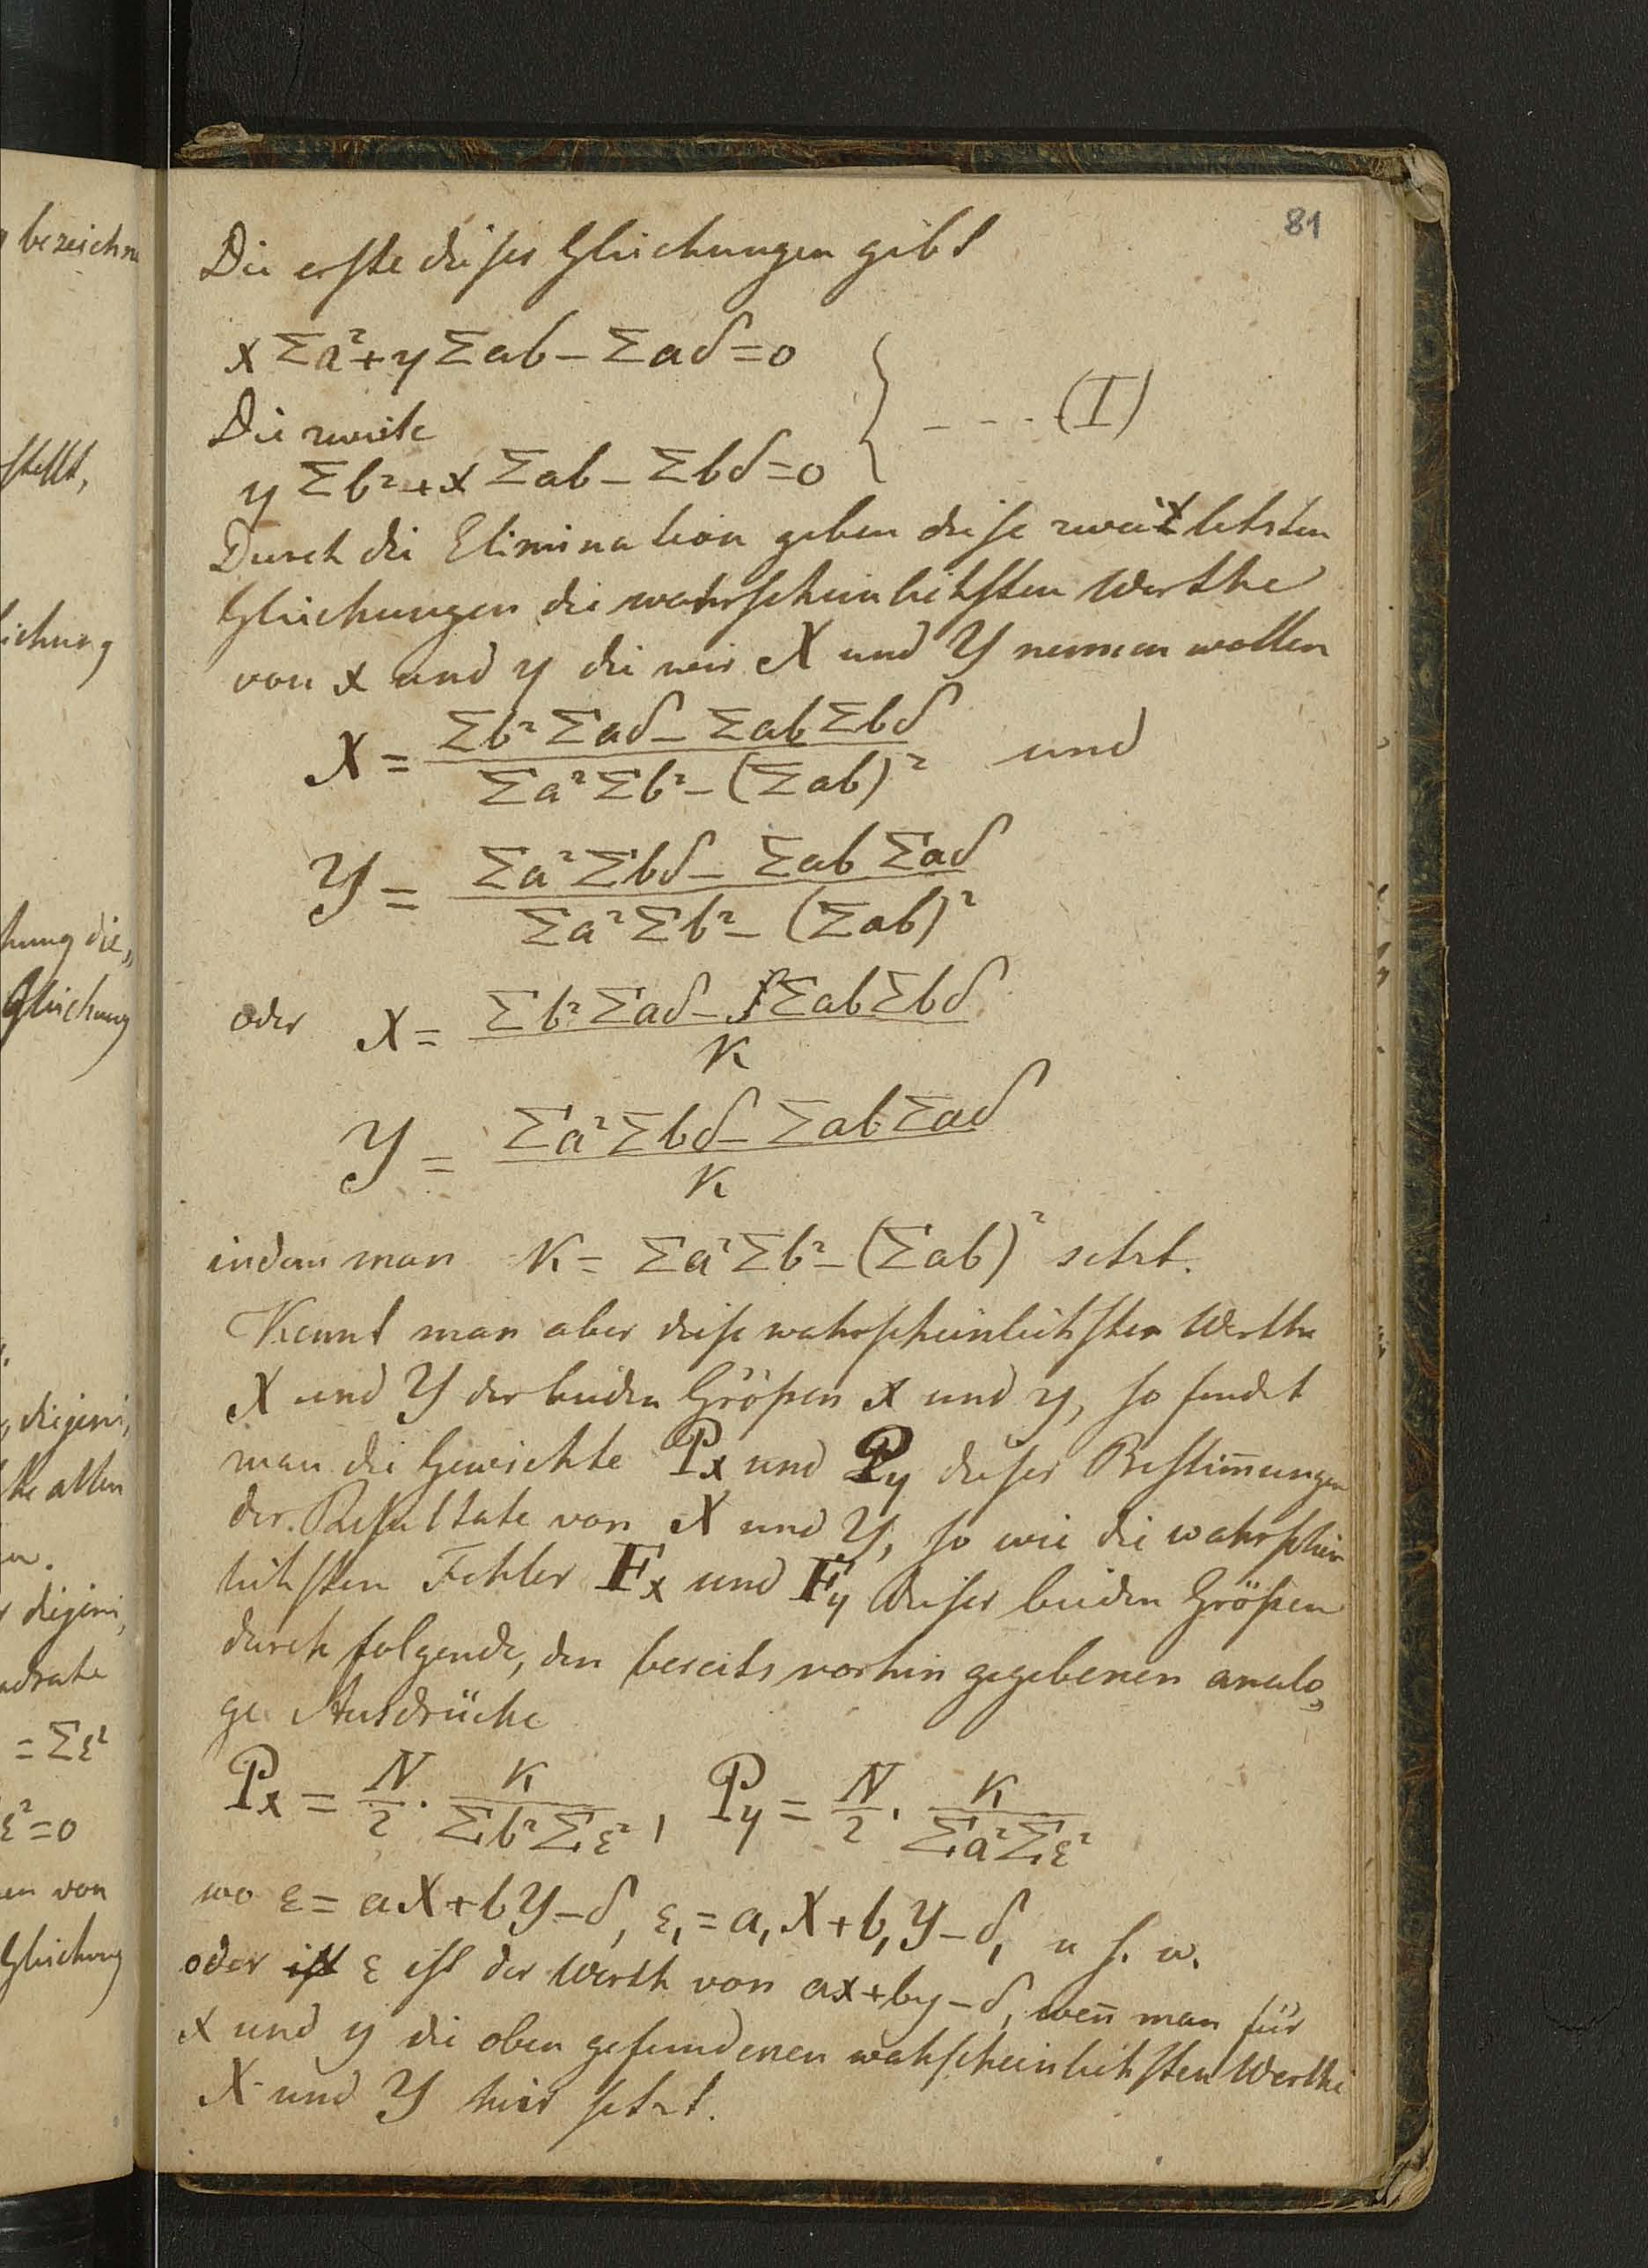 bezeichn
stellt,
ichung
hung die„
Gleichung
diejeni„
ke allen
diejeni„
adrate
= Σε²
ε²=0
en von
Gleichung
81
Die erste dieser Gleichungen gibt
x Σa² + y Σab – Σaδ = 0
Die zweite
– – – (I)
y Σb² + x Σab – Σbδ = 0
Durch die Elimination geben diese zwei letzten
Gleichungen die wahrscheinlichsten Werthe
von x und y die wir X und Y nennen wollen
X = (Σb² Σaδ – Σab Σbδ) / (Σa² Σb² – (Σab)²) und
Y = (Σa² Σbδ – Σab Σaδ) / (Σa² Σb² – (Σab)²)
oder X = (Σb² Σaδ – Σab Σbδ) / K
Y = (Σa² Σbδ – Σab Σaδ) / K
indem man K = Σa² Σb² – (Σab)² setzt.
Kennt man aber diese wahrscheinlichsten Werthe
X und Y der beiden Größen x und y, so findet
man die Gewichte Px und Py dieser Bestim̅ungen
der Resultate von X und Y, so wie die wahrschein
lichsten Fehler Fx und Fy dieser beiden Größen
durch folgende, den bereits vorhin gegebenen analo„
ge Ausdrücke
Px = N/2 · K / (Σb² Σε²), Py = N/2 · K / (Σa² Σε²)
wo ε = aX + bY – δ, ε, = a, X + b, Y – δ, u s. w.
oder ist ε ist der Werth von ax + by – δ, wen̅ man für
x und y die oben gefundenen wahscheinlichsten Werthe
X und Y hier setzt.